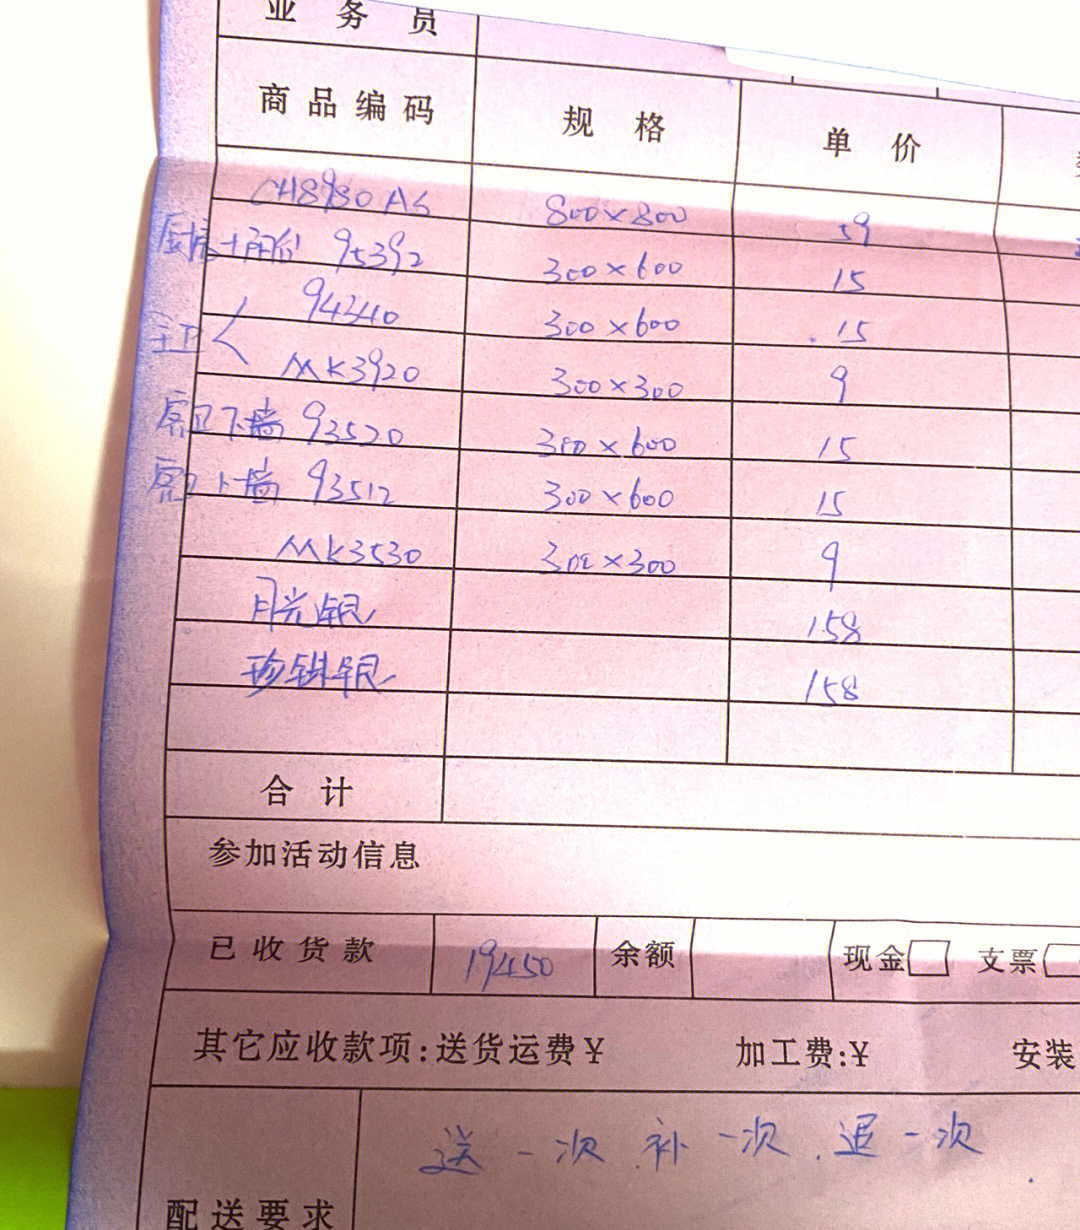 业务员
商品编码 规格 单价
CH8980AS 800×800 59
厨房+阳台 95392 300×600 15
94340 300×600 15
主卫
MK3920 300×300 9
客卫下墙 93520 300×600 15
客卫上墙 93512 300×600 15
MK3530 300×300 9
月光银 158
珍珠银 158
合计
参加活动信息
已收货款 19450 余额 现金 支票
其它应收款项:送货运费¥ 加工费:¥ 安装
送一次.补一次.退一次
配送要求